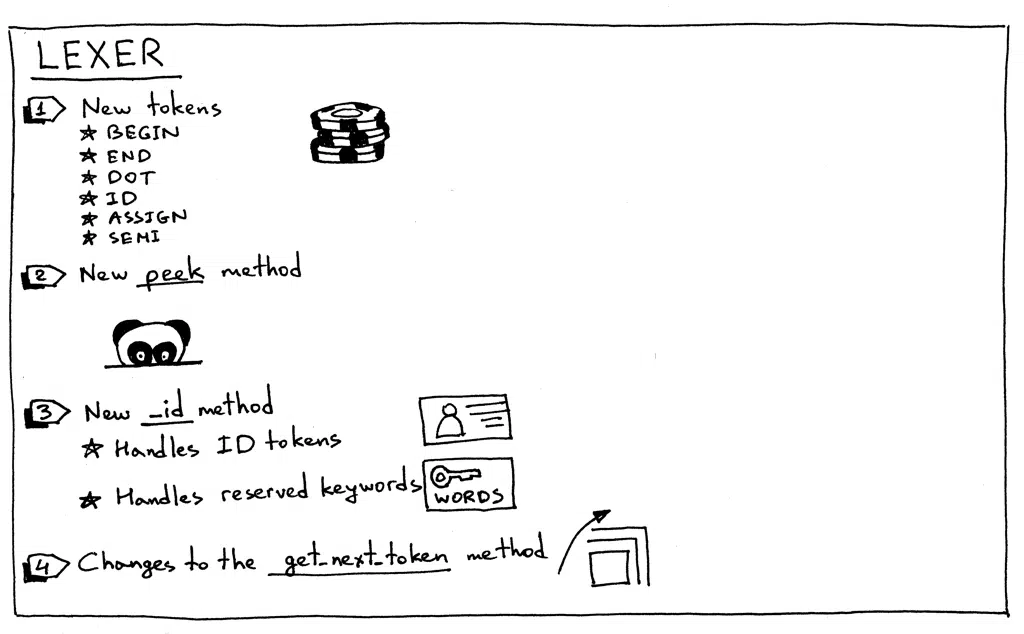 LEXER
1 New tokens
☆ BEGIN
☆ END
☆ DOT
☆ ID
☆ ASSIGN
☆ SEMI
2 New peek method
3 New _id method
☆ Handles ID tokens
☆ Handles reserved keywords
WORDS
4 Changes to the get_next_token method